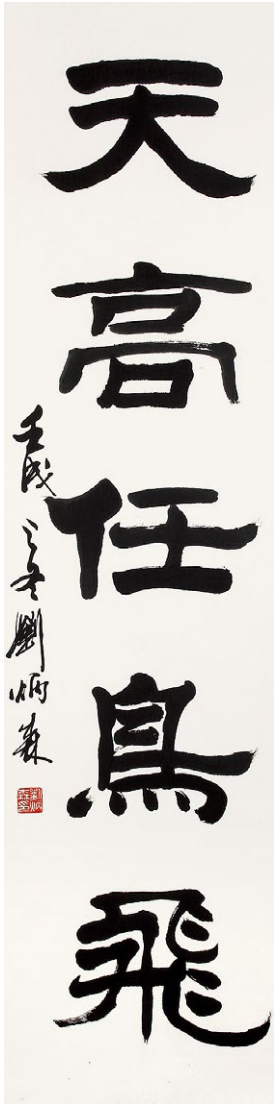 天高任鳥飛
壬戌之冬劉炳森